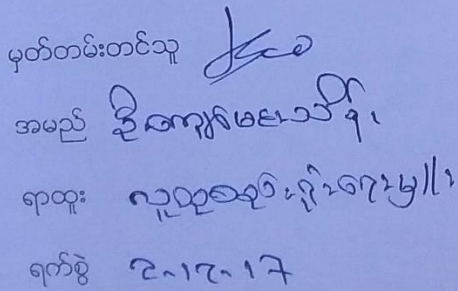 မှတ်တမ်းတင်သူ
အမည် ဦးကျော်မေးသိန်း
ရာထူး လူထုစည်းရုံးရေးမှူး
ရက်စွဲ 2-12-17